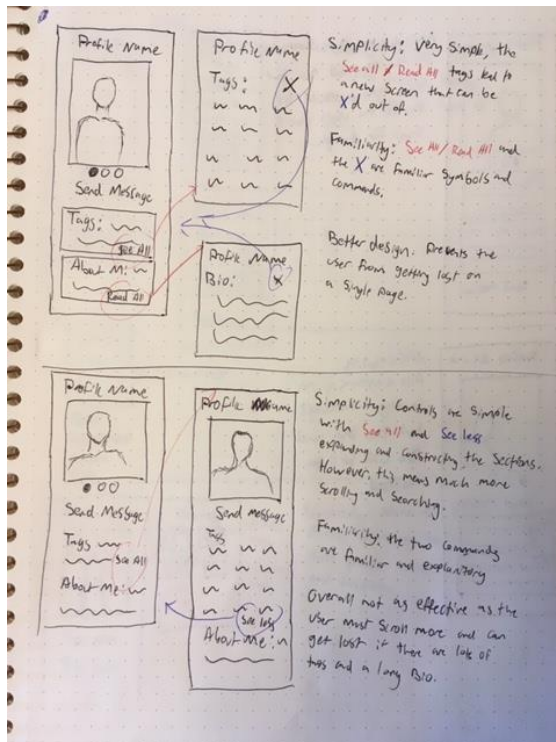 Profile Name
Send Message
Tags:
See All
About Me:
Read All
Profile Name
Tags:
X
Profile Name
Bio:
X
Simplicity: Very simple, the
See all / Read All tags led to
a new screen that can be
X'd out of.
Familiarity: See All/Read All and
the X are familiar symbols and
commands.
Better design. Prevents the
user from getting lost on
a single page.
Profile Name
Send Message
Tags
See All
About Me:
Profile Name
Send message
Tags
See less
About Me:
Simplicity: Controls are simple
with See all and See less
expanding and constructing the sections.
However, this means much more
scrolling and searching.
Familiarity, the two commands
are familiar and explanitory
Overall not as effective as the
user must scroll more and can
get lost if there are lots of
tags and a long Bio.